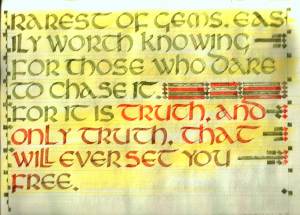 RAREST OF GEMS. EAS
ILY WORTH KNOWING
FOR THOSE WHO DARE
TO CHASE IT.
FOR IT IS TRUTH, AND
ONLY TRUTH, THAT
WILL EVER SET YOU
FREE.